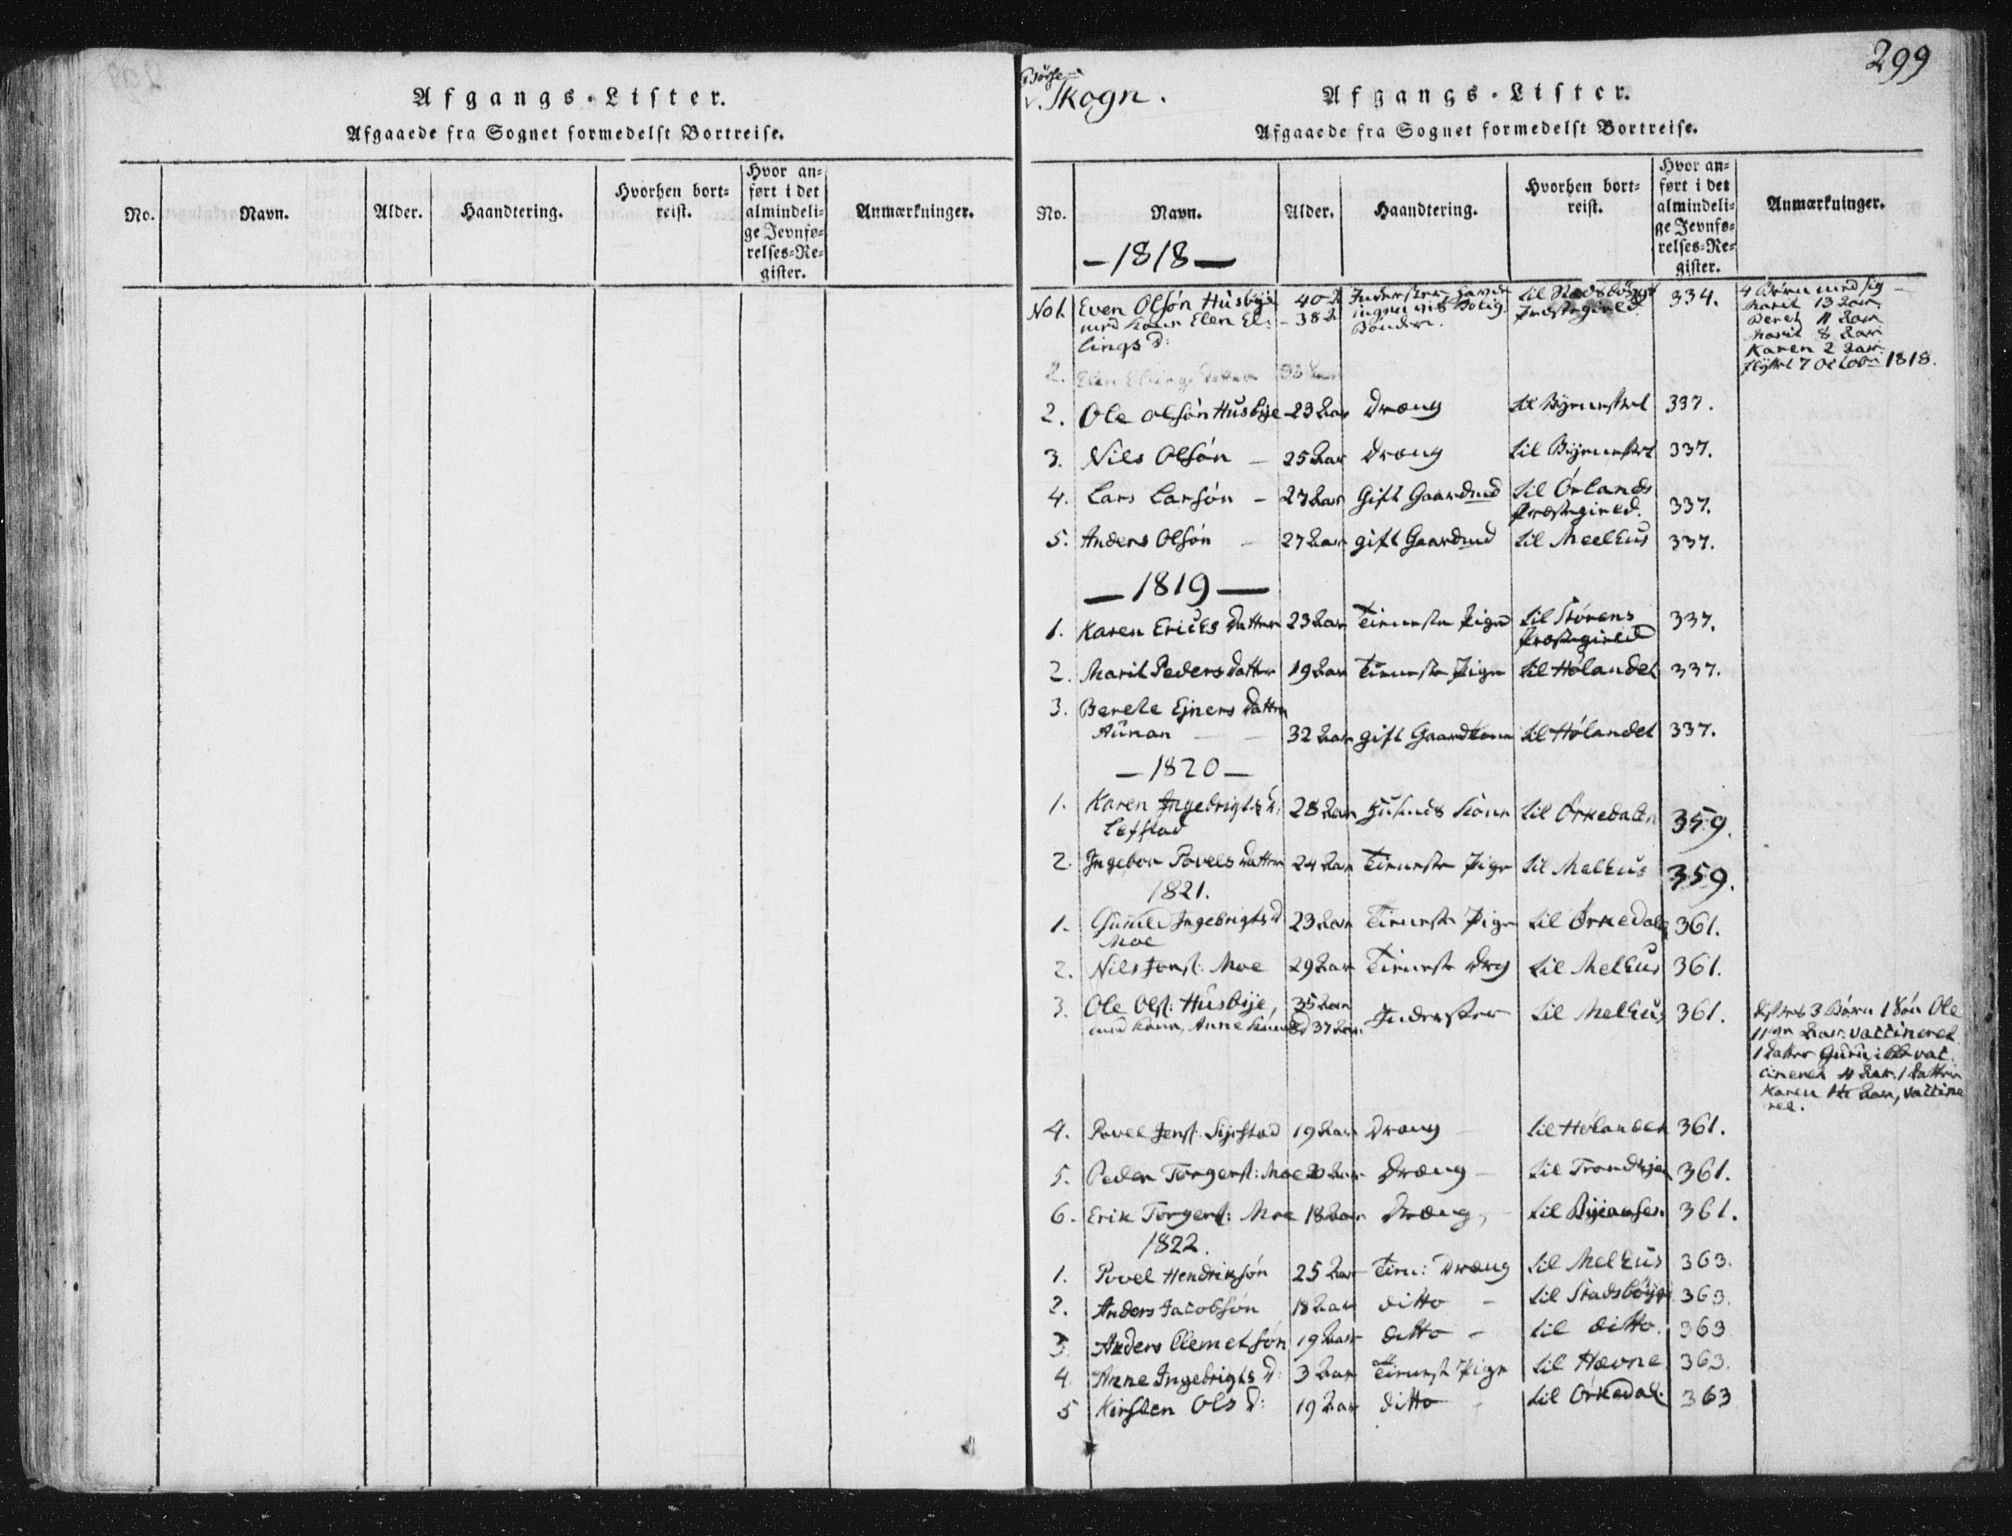 Afgangs-Lister.
Afgaaede fra Sognet formedelst Bortreise.
No.
Navn.
Alder.
Haandtering.
Hvorhen bort=
reist.
Hvor an=
ført i det
almindeli=
ge Jevnfø=
relses=Re=
gister.
Anmærkninger.
299
Børse=
v. Skogn.
Afgangs-Lister.
Afgaaede fra Sognet formedelst Bortreise.
No.
Navn.
Alder.
Haandtering.
Hvorhen bort=
reist.
Hvor an=
ført i det
almindeli=
ge Jevnfø=
relses=Re=
gister.
Anmærkninger.
— 1818 —
No 1. Even Olsøn Husbye 40 Inderster til Stadsbøygd 334. 4 Børn med sig
med Kone Elen El: - 38 Bonden. Præstegield. Marit 13 Aar
lings D: Beret 11 Aar
Marit 8 Aar
Karen 2 Aar
flyttet 7 Octobr 1818.
2. Elen Ellings Datter 38 Aar
2. Ole Olsøn Husbye - 23 Aar Dræng til Byenesset 337.
3. Nils Olsøn - 25 Aar Dræng til Byenesset 337.
4. Lars Larsøn - 27 Aar Gift Gaardmd til Ørlands
Præstegield. 337.
5. Anders Olsøn - 27 Aar gift Gaardmd til Meelhus 337.
— 1819 —
1. Karen Ericks Datter 23 Aar Tieneste Pige til Størens 337.
Præstegield
2. Marit Peders Datter 19 Aar Tieneste Pige til Hølandet 337.
3. Berete Ejners Datter
Aunan - 32 Aar gift Gaardkone til Hølandet 337.
— 1820 —
1. Karen Ingebrigts D. 28 Aar Husmds Kone til Örkedalen 359.
Lefstad
2. Ingebor Povels Datter 24 Aar Tieneste Pige til Melhus 359.
1821.
1. Guruld Ingebrigts D 23 Aar Tieneste Pige til Ørkedals 361.
Moe
2. Nils Jonss: Moe 29 Aar Tieneste Drg til Melhus 361.
3. Ole Ols: Husbye, 35 Aar Inderster til Melhus 361. 3 Børn 1 Søn Ole
med Kone, Anne 37 Aar. 11 Aar. vaccineret
1 Datter Guru: vac
cineret 4 Aar. 1 Datter
Karen Aar, vaccine
ret.
4. Povel Jens: Syrstad 19 Aar Dræng til Hølandet 361.
5. Peder Torgers: Moe 20 Aar Dræng - til Trondhjem 361.
6. Erik Torgers: Moe 18 Aar Dræng, - til Byeaasen 361.
1822.
1. Povel Hendriksøn 25 Aar Tien: Dræng til Melhus 363.
2. Anders Jacobsøn 18 Aar ditto - til Stadsbøygd 363.
3. Anders Clemetsøn 19 Aar ditto - til ditto. 363
4. Anne Ingebrigts D: 3 Aar Tienest Pige til Hævne 363.
5 Kirsten Ols D: 19 Aar ditto - til Ørkedal. 363